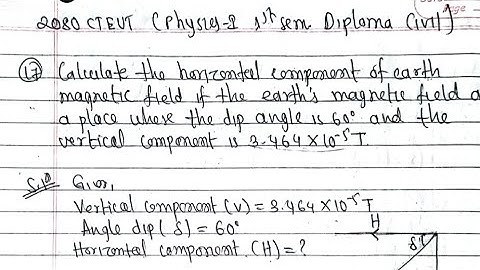 2080 CTEVT (Physics-I 1st sem Diploma Civil)
17 Calculate the horizontal component of earth
magnetic field if the earth's magnetic field a
a place where the dip angle is 60° and the
vertical component is 3.464 X 10-5 T.
Given,
Vertical component (V) = 3.464 X 10-5 T
Angle dip (δ) = 60°
Horizontal component (H) = ?
H